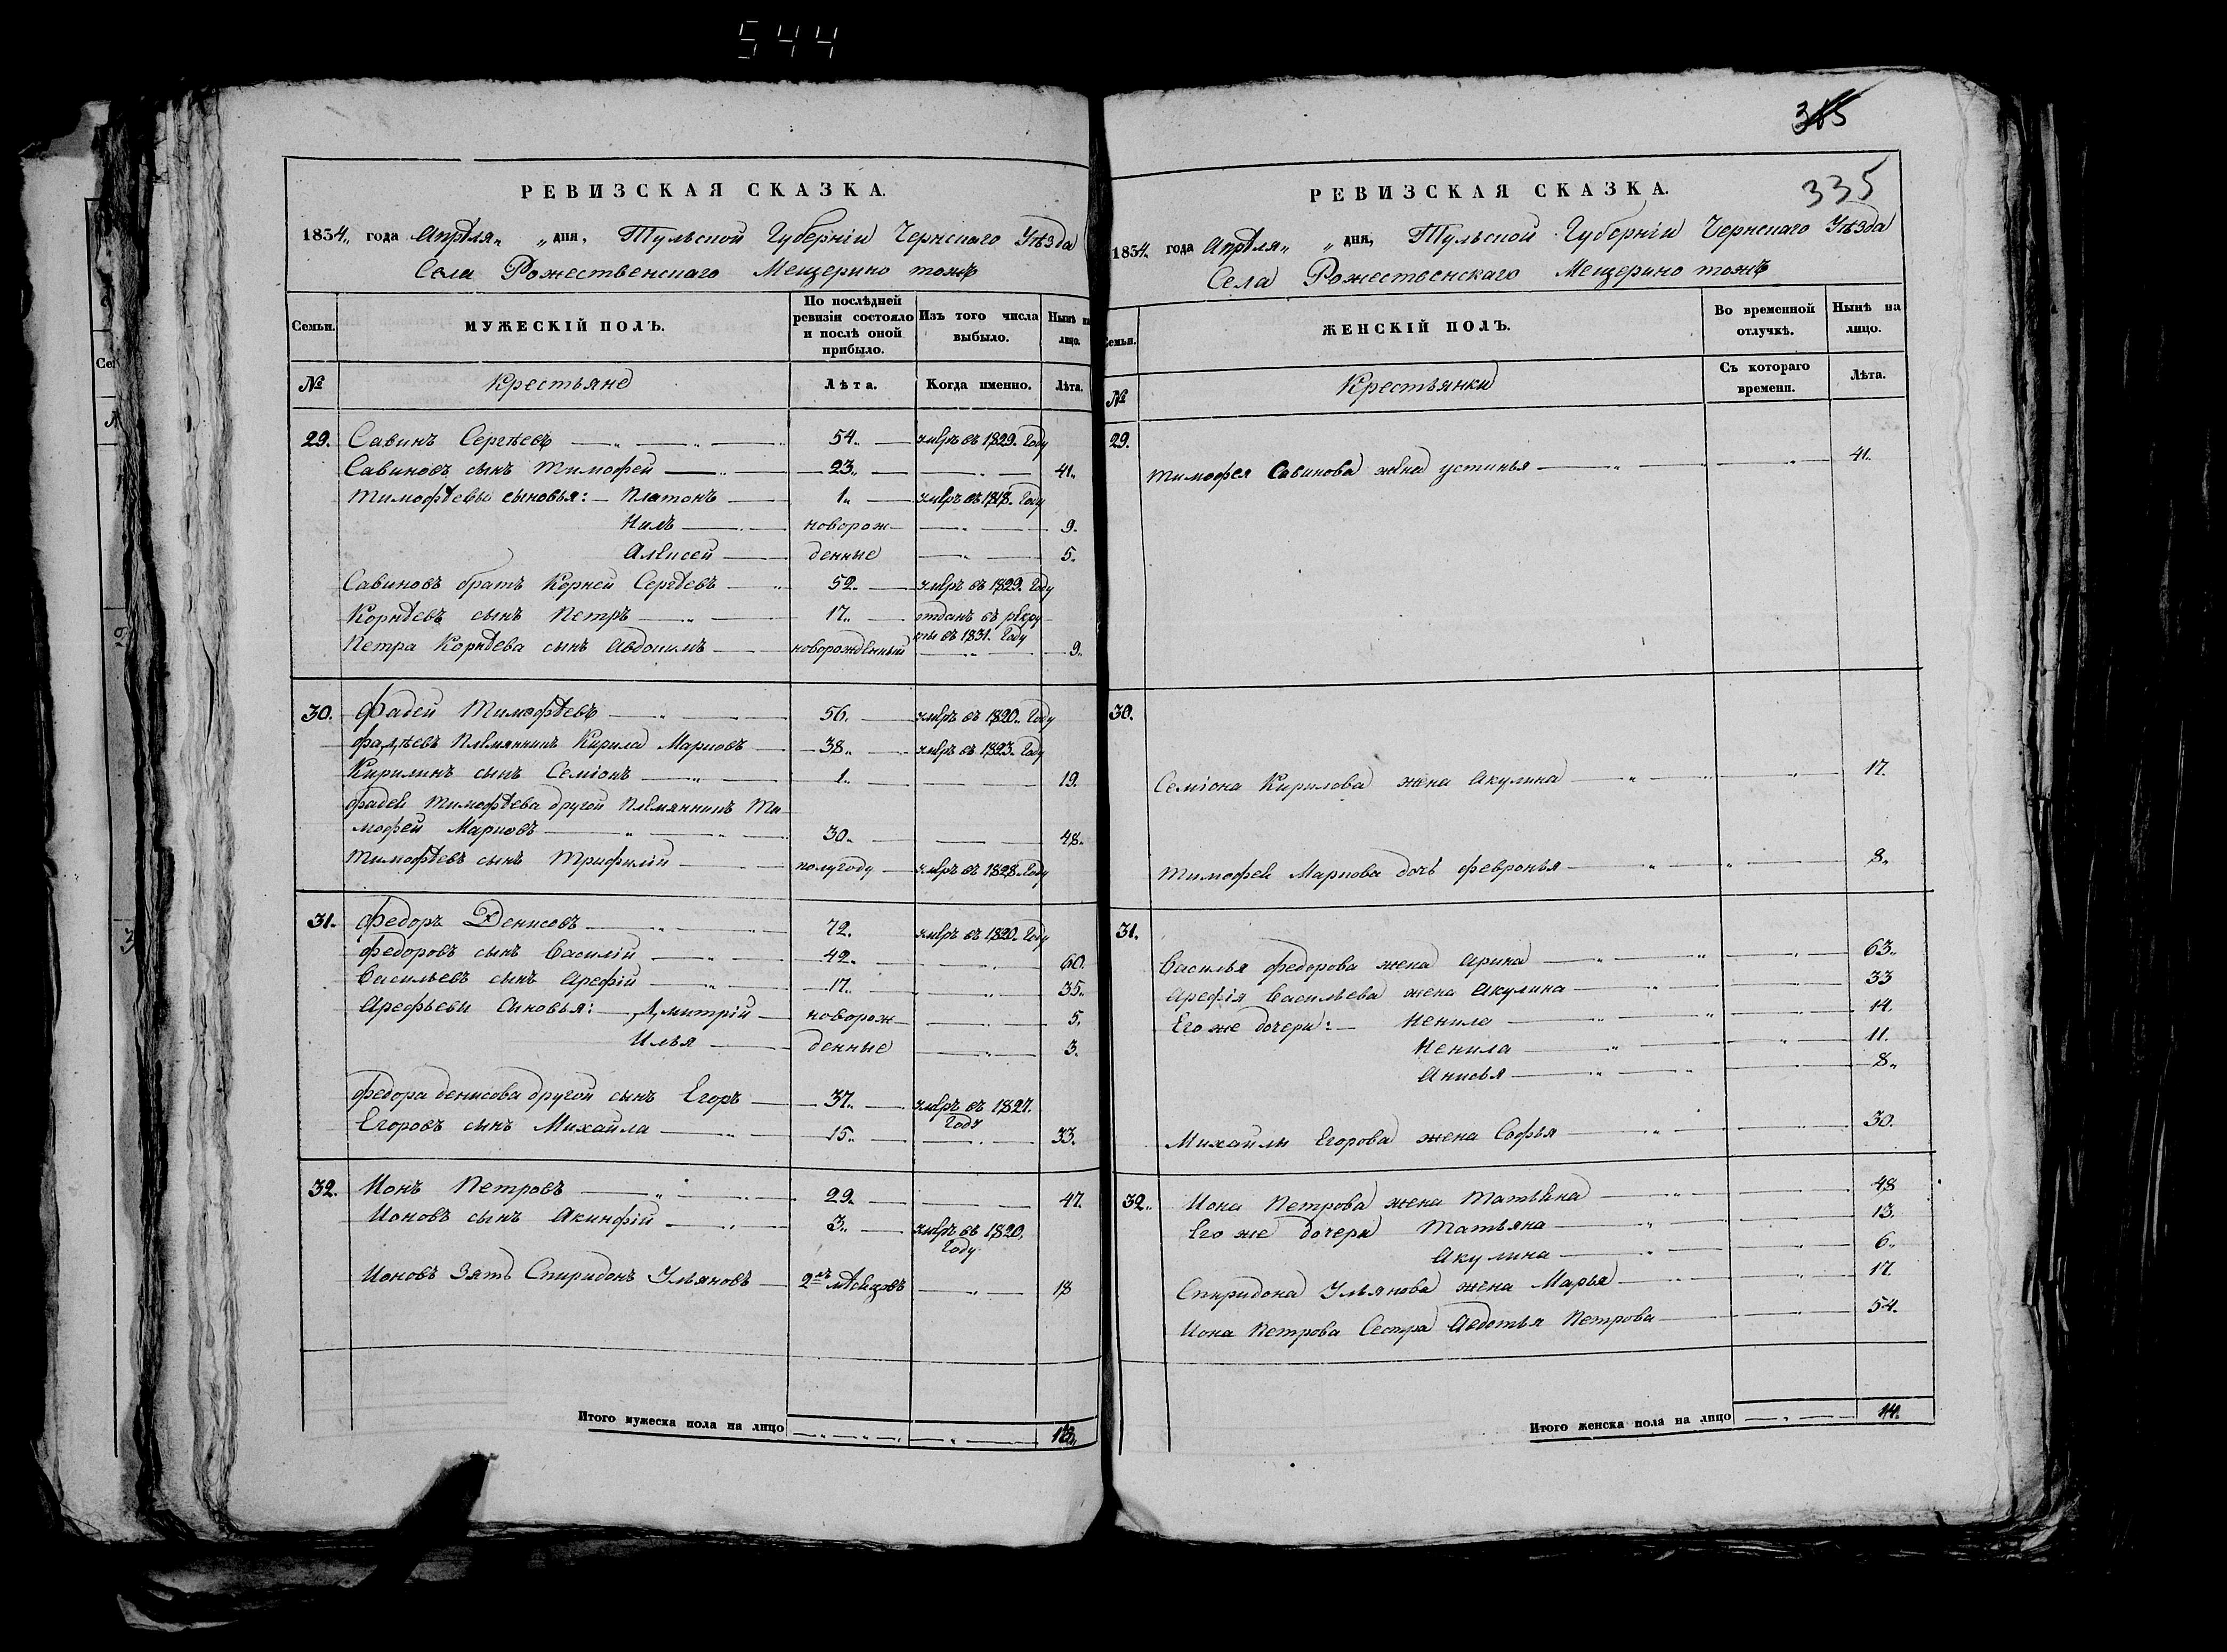 544
РЕВИЗСКАЯ СКАЗКА.
1834 года Апрѣля „ дня, Тульской Губерніи Чернскаго Уѣзда
Села Рожественскаго Мещерино тожъ
Семьи.
МУЖЕСКІЙ ПОЛЪ.
По послѣдней ревизіи состояло и послѣ оной прибыло.
Изъ того числа выбыло.
Нынѣ на лицо.
№ Крестьяне Лѣта. Когда именно. Лѣта.
29. Савинъ Сергѣевъ 54. умръ въ 1829. Году
Савиновъ сынъ Тимофей 23. 41.
Тимофѣевы сыновья: Платонъ 1. умръ въ 1818. Году
Нилъ новорож 9.
Алѣксей денные 5.
Савиновъ братъ Корней Сергѣевъ 52. умръ въ 1829. Году
Корнѣевъ сынъ Петръ 17. отданъ въ рекру
ты въ 1831. Году
Петра Корнѣева сынъ Авдокимъ новорожденный 9.
30. Фадей Тимофѣевъ 56. умръ въ 1820. Году
Фадѣевъ племянникъ Кирила Марковъ 38. умръ въ 1823. Году
Кирилинъ сынъ Семіонъ 1. 19.
Фадей Тимофѣева другой племянникъ Ти
мофей Марковъ 30. 48.
Тимофѣевъ сынъ Трифилій полугоду умръ въ 1828 Году
31. Федоръ Денисовъ 72. умръ въ 1820. Году
Федоровъ сынъ Василій 42. 60.
Васильевъ сынъ Арефій 17. 35.
Арефьевы сыновья: Дмитрій новорож 5.
Илья денные 3.
Федора денисова другой сынъ Егоръ 37. умръ въ 1827.
Году
Егоровъ сынъ Михайла 15. 33.
32. Ионъ Петровъ 29. 47.
Ионовъ сынъ Акинфій 3. умръ въ 1820.
Году
Ионовъ Зять Спиридонъ Ульяновъ 2хъ мѣсяцовъ 18
Итого мужеска пола на лицо
335
РЕВИЗСКАЯ СКАЗКА.
1834. года Апрѣля „ дня, Тульской Губерніи Чернскаго Уѣзда
Села Рожественскаго Мещерино тожъ
Семьи.
ЖЕНСКІЙ ПОЛЪ.
Во временной отлучкѣ.
Нынѣ на лицо.
№ Крестьянки Съ котораго времени. Лѣта.
29.
Тимофея Савинова жена устинья 41.
30.
Семіона Кирилова жена Акулина 17.
Тимофей Маркова дочь февронья 8.
31.
Василья Федорова жена Арина 63.
Арефія Васильева жена Акулина 33
Его же дочери: Ненила 14.
Ненила 11.
Анисья 8.
Михайлы Егорова жена Софья 30.
32. Иона Петрова жена Татьяна 48
Его же дочери Татьяна 13.
Акулина 6.
Спиридона Ульянова жена Марья 17.
Иона Петрова Сестра Авдотья Петрова 54.
Итого женска пола на лицо 14.